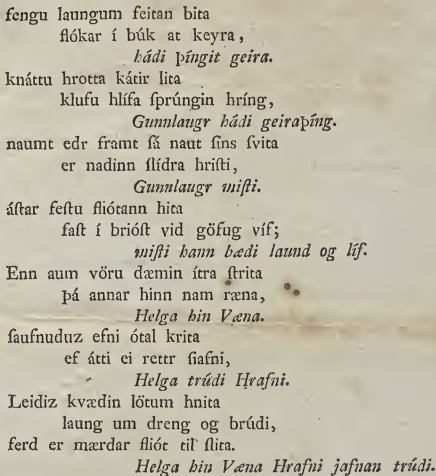 fengu laungum feitan bita
flókar í búk at keyra,
hádi þíngit geira.
knáttu hrotta kátir lita
klufu hlífa ſprúngin hríng,
Gunnlaugr hádi geiraþíng.
naumt edr framt ſá naut ſins ſvita
er nadinn ſlídra hriſti,
Gunnlaugr miſti.
áſtar feſtu fliótann hita
faſt í brióſt vid göfug víf;
miſti hann bædi laund og líf.
Enn aum vöru dæmin ítra ſtrita
þá annar hinn nam ræna,
Helga hin Væna.
ſaufnuduz efni ótal krita
ef átti ei rettr ſiafni,
Helga trúdi Hrafni.
Leidiz kvædin lötum hnita
laung um dreng og brúdi,
ferd er mærdar fliót til ſlita.
Helga hin Væna Hrafni jafnan trúdi.